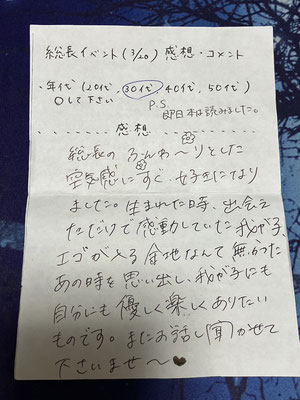 総長イベント(3/20) 感想・コメント
年代(20代, 30代, 40代, 50代)
○して下さい
P.S.
即日本は読みました。
感想
総長の ふんわ〜りとした
空気感にすぐ、好きになり
ました。生まれた時、出会え
ただけで感動していた我が子、
エゴが入る余地なんて無かった
あの時を思い出し、我が子にも
自分にも優しく楽しくありたい
ものです。またお話し聞かせて
下さいませ〜♥